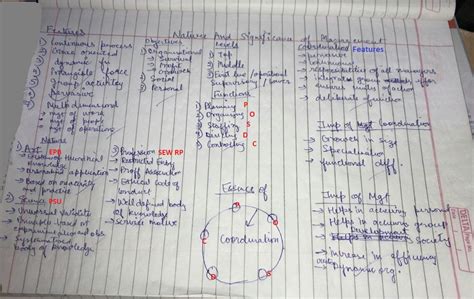 Nature And Significance of Management
Features
1) Continuous process
2) Goal oriented
3) Dynamic fn
4) Intangible force
5) Group activity
6) Pervasive
7) Multidimensional
→ mgt of work
→ mgt of people
→ mgt of operations
Nature
1) Art EPB
→ Existence of theoretical
knowledge
→ Personalised application
→ Based on creativity
and practice
2) Science PSU
→ Universal validity
→ Principles based on
experimentation and obs.
→ Systematised
body of knowledge
Objectives
1) Organisational
→ Survival
→ Profit
→ Growth
2) Social
3) Personal
3) Profession SEW RP
→ Restricted Entry
→ Proff. Association
→ Ethical Code of
conduct
→ Well defined body
of knowledge
→ Service motive
Levels
1) Top
2) Middle
3) Supervisory / Lower
Functions
1) Planning P
2) Organising O
3) Staffing S
4) Directing D
5) Controlling C
Essence of
Coordination
P
O
S
D
C
Coordination Features
→ continuous
→ responsibility of all managers
→ integrates group efforts
→ ensures unity of action
→ deliberate function
Imp of Coordination
→ Growth in size
→ Specialisation
→ functional diff.
Imp of Mgt
→ Helps in achieving personal
→ Helps in achieving group
→ Development society
→ Increase in efficiency
→ Dynamic org.